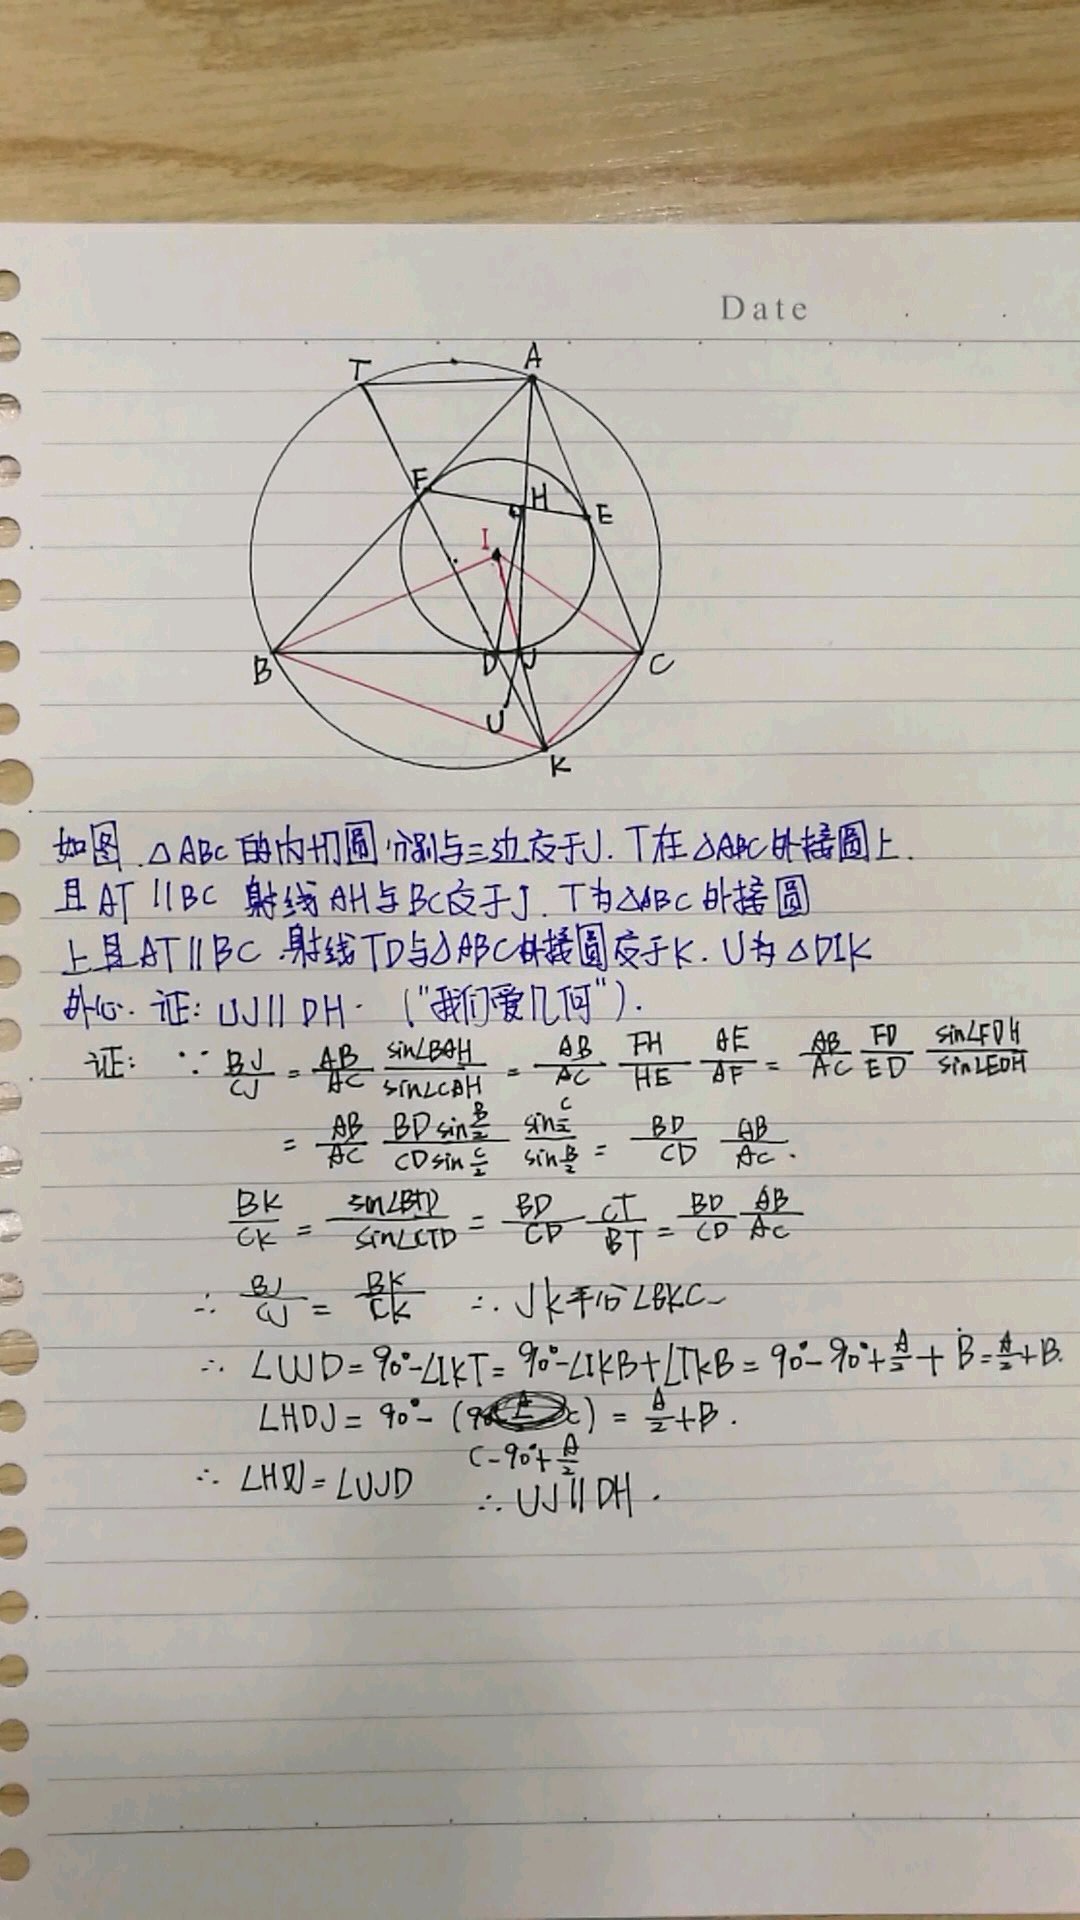 Date
T
A
F
H
E
I
B
D
J
C
U
K
如图.△ABC的内切圆分别与三边交于J.T在△ABC外接圆上.
且AT∥BC 射线AH与BC交于J.T为△ABC外接圆
上且AT∥BC.射线TD与△ABC外接圆交于K.U为△DIK
外心.证:UJ∥DH.("我们爱几何").
证: ∵ BJ/CJ = AB/AC sin∠BAH/sin∠CAH = AB/AC FH/HE AE/AF = AB/AC FD/ED sin∠FDH/sin∠EDH
= AB/AC BDsin B/2 / CDsin C/2 sin C/2 / sin B/2 = BD/CD AB/AC.
BK/CK = sin∠BTD/sin∠CTD = BD/CD CT/BT = BD/CD AB/AC
∴ BJ/CJ = BK/CK ∴ JK平分∠BKC
∴ ∠UJD = 90°-∠IKT = 90°-∠IKB+∠TKB = 90°-90°+A/2+B = A/2+B.
∠HDJ = 90°-( ) = A/2+B.
C-90°+A/2
∴ ∠HDJ = ∠UJD ∴ UJ∥DH.